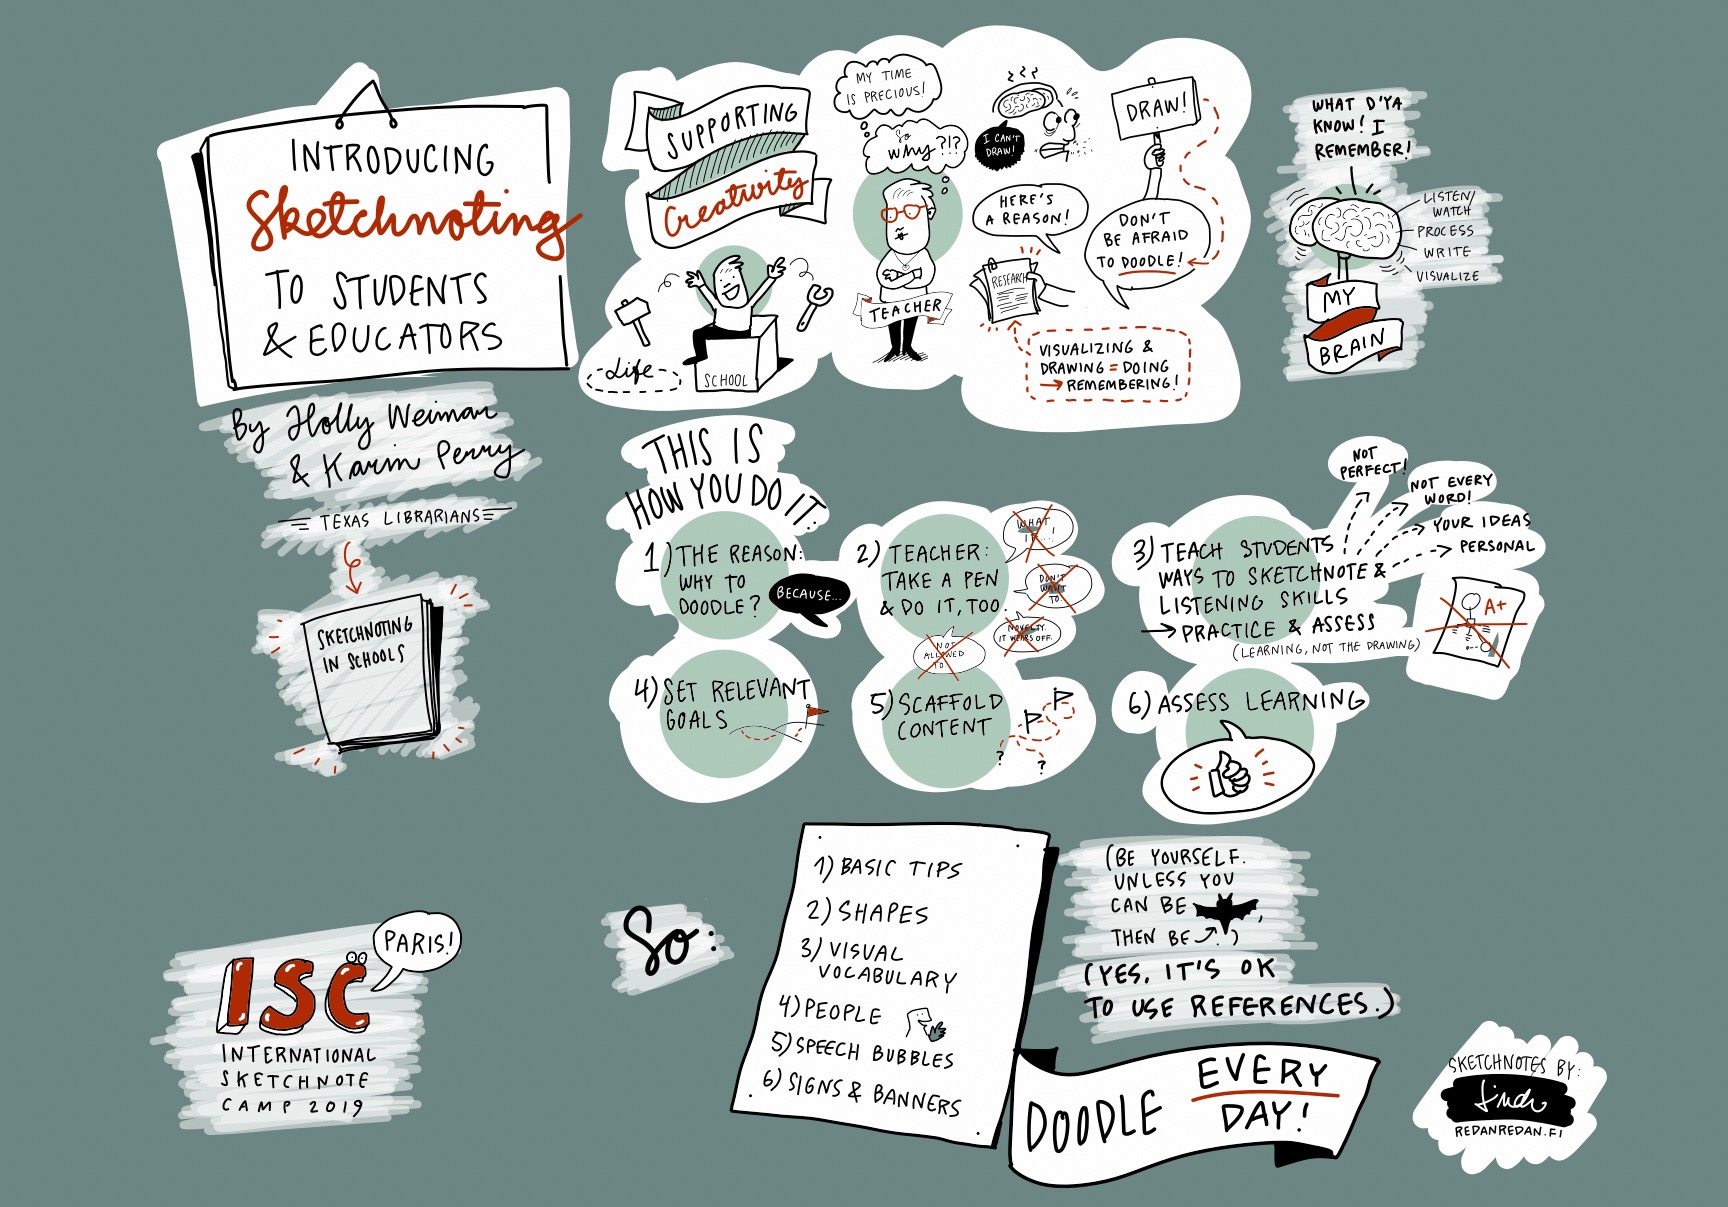 INTRODUCING
Sketchnoting
TO STUDENTS
& EDUCATORS
By Holly Weimar
& Karin Perry
TEXAS LIBRARIANS
SKETCHNOTING
IN SCHOOLS
SUPPORTING
Creativity
Life
SCHOOL
MY TIME
IS PRECIOUS!
So
why?!?
TEACHER
I CAN'T
DRAW!
HERE'S
A REASON!
RESEARCH
VISUALIZING &
DRAWING = DOING
→ REMEMBERING!
DRAW!
DON'T
BE AFRAID
TO DOODLE!
WHAT D'YA
KNOW! I
REMEMBER!
LISTEN/
WATCH
PROCESS
WRITE
VISUALIZE
MY
BRAIN
THIS IS
HOW YOU DO IT:
1) THE REASON:
WHY TO
DOODLE?
BECAUSE...
2) TEACHER:
TAKE A PEN
& DO IT, TOO.
WHAT
IF...!
DON'T
WANT
TO
NOVELTY.
IT WEARS OFF.
NOT
ALLOWED
TO
3) TEACH STUDENTS
WAYS TO SKETCHNOTE &
LISTENING SKILLS
→ PRACTICE & ASSESS
(LEARNING, NOT THE DRAWING)
NOT
PERFECT!
NOT EVERY
WORD!
YOUR IDEAS
PERSONAL
A+
4) SET RELEVANT
GOALS
5) SCAFFOLD
CONTENT
? ?
6) ASSESS LEARNING
So:
1) BASIC TIPS
2) SHAPES
3) VISUAL
VOCABULARY
4) PEOPLE
5) SPEECH BUBBLES
6) SIGNS & BANNERS
(BE YOURSELF.
UNLESS YOU
CAN BE ,
THEN BE .)
(YES, IT'S OK
TO USE REFERENCES.)
DOODLE EVERY
DAY!
PARIS!
ISC
INTERNATIONAL
SKETCHNOTE
CAMP 2019
SKETCHNOTES BY:
REDANREDAN.FI